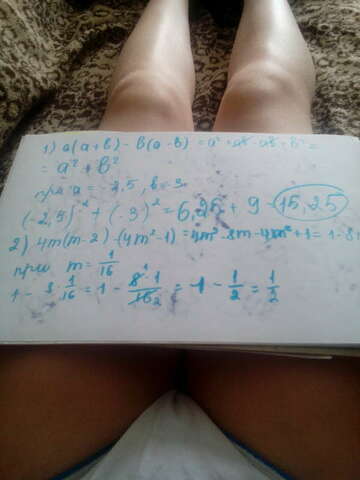 1) a(a+b) - b(a-b) = a² + ab - ab + b² =
= a² + b²
при a = -2,5, b = 3
(-2,5)² + (3)² = 6,25 + 9 = 15,25
2) 4m(m-2) - (4m²-1) = 4m² - 8m - 4m² + 1 = 1 - 8
при m = 1/16
1 - 8 · 1/16 = 1 - 8¹·1/16₂ = 1 - 1/2 = 1/2